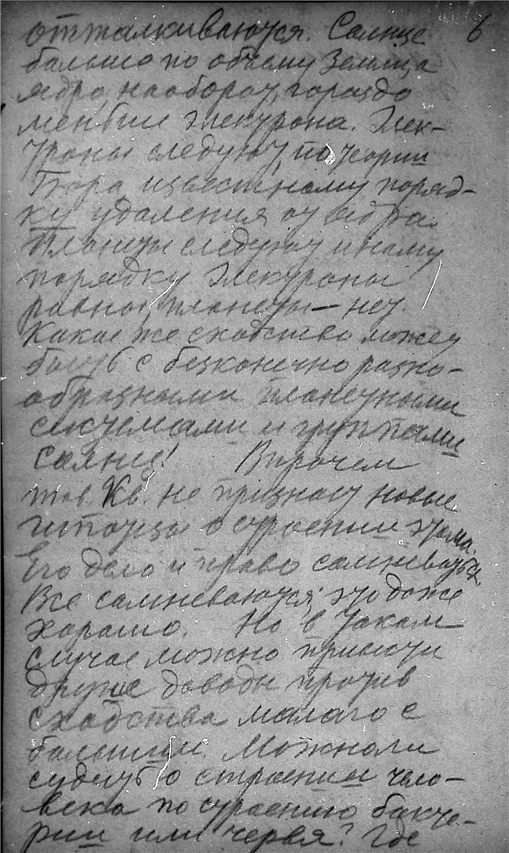 отталкиваются. Солнце 6
больше по объему Земли, а
ядро, наоборот, гораздо
меньше электрона. Элек-
троны следуют, по теории
Бора известному поряд-
ку удаления от ядра.
Планеты следуют иному
порядку. Электроны
равны, планеты – нет.
Какое же сходство может
быть с безконечно разно-
образными планетными
системами и группами
солнц! Впрочем
тов. Кв. не признает новые
гипотезы о строении атома.
Его дело и право сомневаться.
Все сомневаются; это даже
хорошо. Но в таком
случае можно привести
другие доводы против
сходства малого с
большим. Можно ли
судить о строении чело-
века по строению бакте-
рии или червя? Где